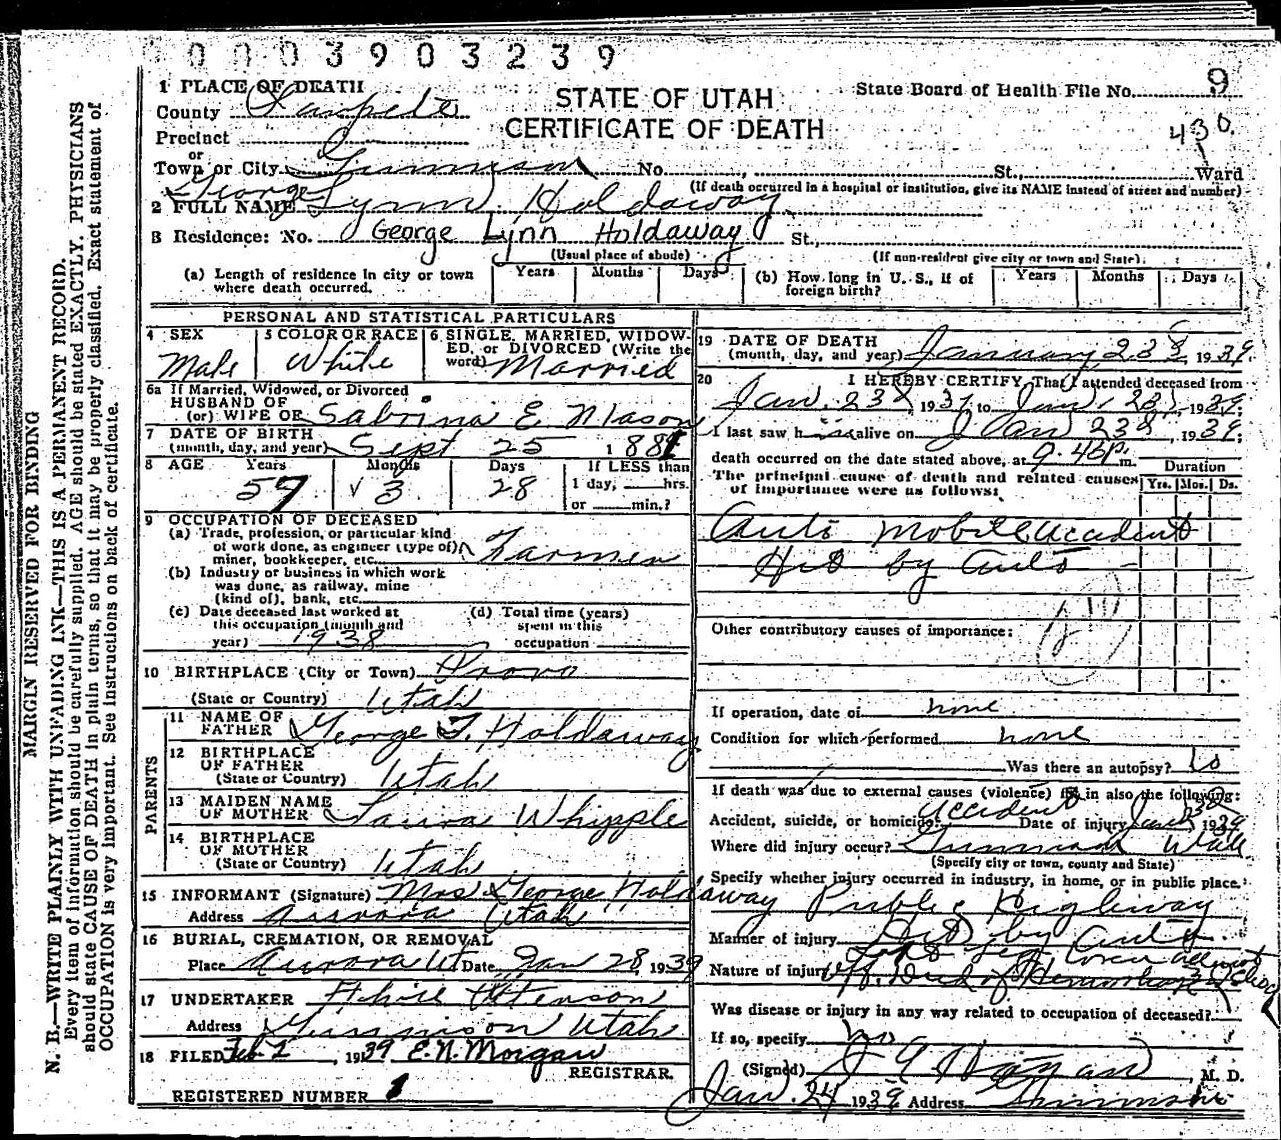 0003903239
1 PLACE OF DEATH
County Sanpete
Precinct
or
Town or City Gunnison No. St., Ward
STATE OF UTAH
CERTIFICATE OF DEATH
State Board of Health File No. 9
430
(If death occurred in a hospital or institution, give its NAME instead of street and number)
2 FULL NAME George Lynn Holdaway
3 Residence: No. George Lynn Holdaway St.,
(Usual place of abode) (If non-resident give city or town and State)
(a) Length of residence in city or town where death occurred. Years Months Days
(b) How long in U. S., if of foreign birth? Years Months Days
MARGIN RESERVED FOR BINDING
N. B.—WRITE PLAINLY WITH UNFADING INK—THIS IS A PERMANENT RECORD.
Every item of information should be carefully supplied. AGE should be stated EXACTLY. PHYSICIANS
should state CAUSE OF DEATH in plain terms, so that it may be properly classified. Exact statement of
OCCUPATION is very important. See instructions on back of certificate.
PERSONAL AND STATISTICAL PARTICULARS
4 SEX Male
5 COLOR OR RACE White
6 SINGLE, MARRIED, WIDOWED, or DIVORCED (Write the word) Married
6a If Married, Widowed, or Divorced
HUSBAND OF
(or) WIFE OF Sabrina E. Mason
7 DATE OF BIRTH
(month, day, and year) Sept 25 1881
8 AGE Years 57 Months 3 Days 28
If LESS than
1 day, hrs.
or min.?
9 OCCUPATION OF DECEASED
(a) Trade, profession, or particular kind
of work done, as engineer (type of)
miner, bookkeeper, etc. Farmer
(b) Industry or business in which work
was done, as railway, mine
(kind of), bank, etc.
(c) Date deceased last worked at
this occupation (month and
year) 1938
(d) Total time (years)
spent in this
occupation
10 BIRTHPLACE (City or Town) Provo
(State or Country) Utah
PARENTS
11 NAME OF
FATHER George T. Holdaway
12 BIRTHPLACE
OF FATHER
(State or Country) Utah
13 MAIDEN NAME
OF MOTHER Laura Whipple
14 BIRTHPLACE
OF MOTHER
(State or Country) Utah
15 INFORMANT (Signature) Mrs George Holdaway
Address Aurora Utah
16 BURIAL, CREMATION, OR REMOVAL
Place Aurora Ut Date Jan 28 1939
17 UNDERTAKER
Address Gunnison Utah
18 FILED Feb 2, 1939 E. N. Morgan
REGISTRAR.
REGISTERED NUMBER 1
19 DATE OF DEATH
(month, day, and year) January 23, 1939.
20 I HEREBY CERTIFY, That I attended deceased from
Jan. 23, 1939 to Jan. 23, 1939;
I last saw him alive on Jan 23, 1939;
death occurred on the date stated above, at 9.45 p. m.
The principal cause of death and related causes
of importance were as follows:
Duration
Yrs. Mos. Ds.
Auto Mobile accident
Hit by Auto
Other contributory causes of importance:
If operation, date of none
Condition for which performed none
Was there an autopsy? No
If death was due to external causes (violence) fill in also the following:
Accident, suicide, or homicide? accident Date of injury Jan 23 1939
Where did injury occur? Gunnison Utah
(Specify city or town, county and State)
Specify whether injury occurred in industry, in home, or in public place.
Public Highway
Manner of injury Hit by auto
Nature of injury leg torn almost off. Died of Hemorrhage
Was disease or injury in any way related to occupation of deceased?
If so, specify no
(Signed) M. D.
Jan. 24 1939 Address Gunnison